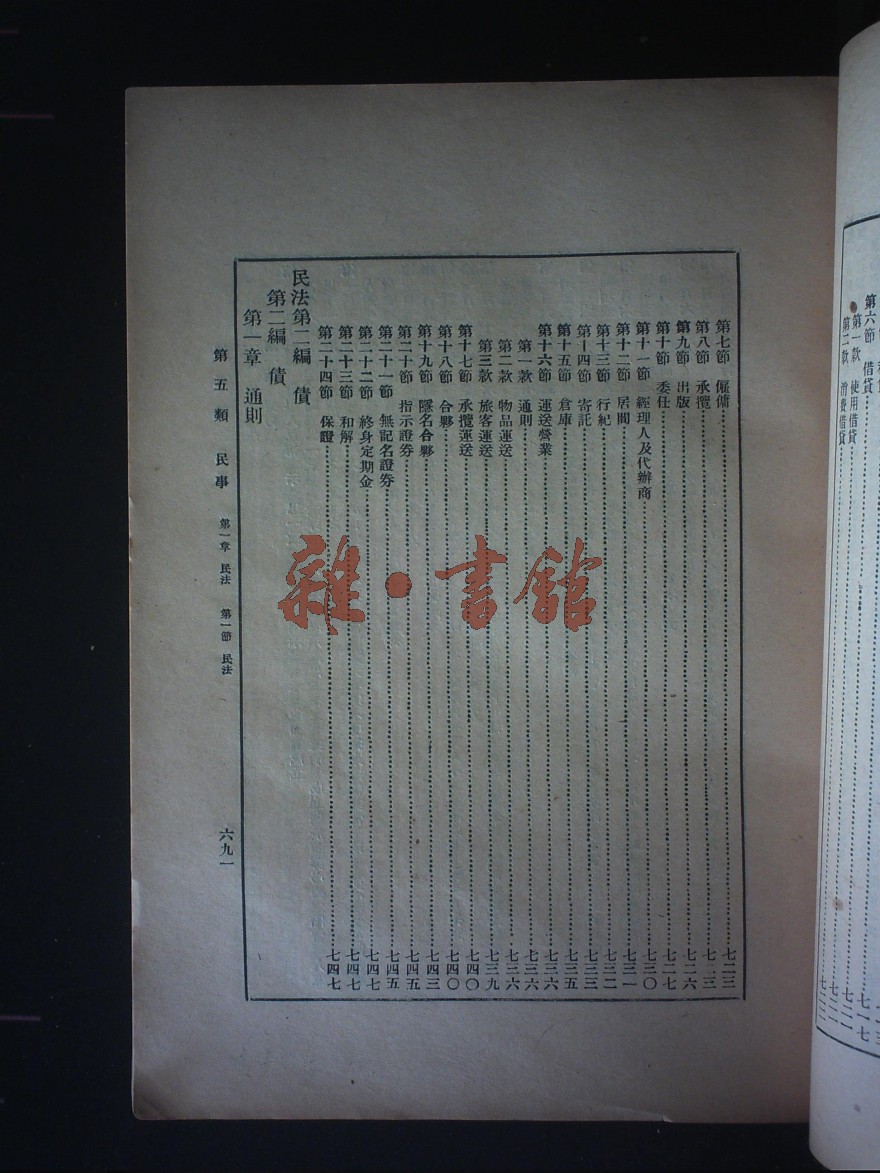 第七節 僱傭 七二三
第八節 承攬 七二三
第九節 出版 七二六
第十節 委任 七二七
第十一節 經理人及代辦商 七三〇
第十二節 居間 七三一
第十三節 行紀 七三二
第十四節 寄託 七三三
第十五節 倉庫 七三五
第十六節 運送營業 七三六
第一款 通則 七三六
第二款 物品運送 七三六
第三款 旅客運送 七三九
第十七節 承攬運送 七四〇
第十八節 合夥 七四〇
第十九節 隱名合夥 七四三
第二十節 指示證券 七四五
第二十一節 無記名證券 七四五
第二十二節 終身定期金 七四七
第二十三節 和解 七四七
第二十四節 保證 七四七
民法第二編 債
第二編 債
第一章 通則
第五類 民事 第一章 民法 第一節 民法 六九一
雜·書館
第六節 借貸
第一款 使用借貸
第二款 消費借貸